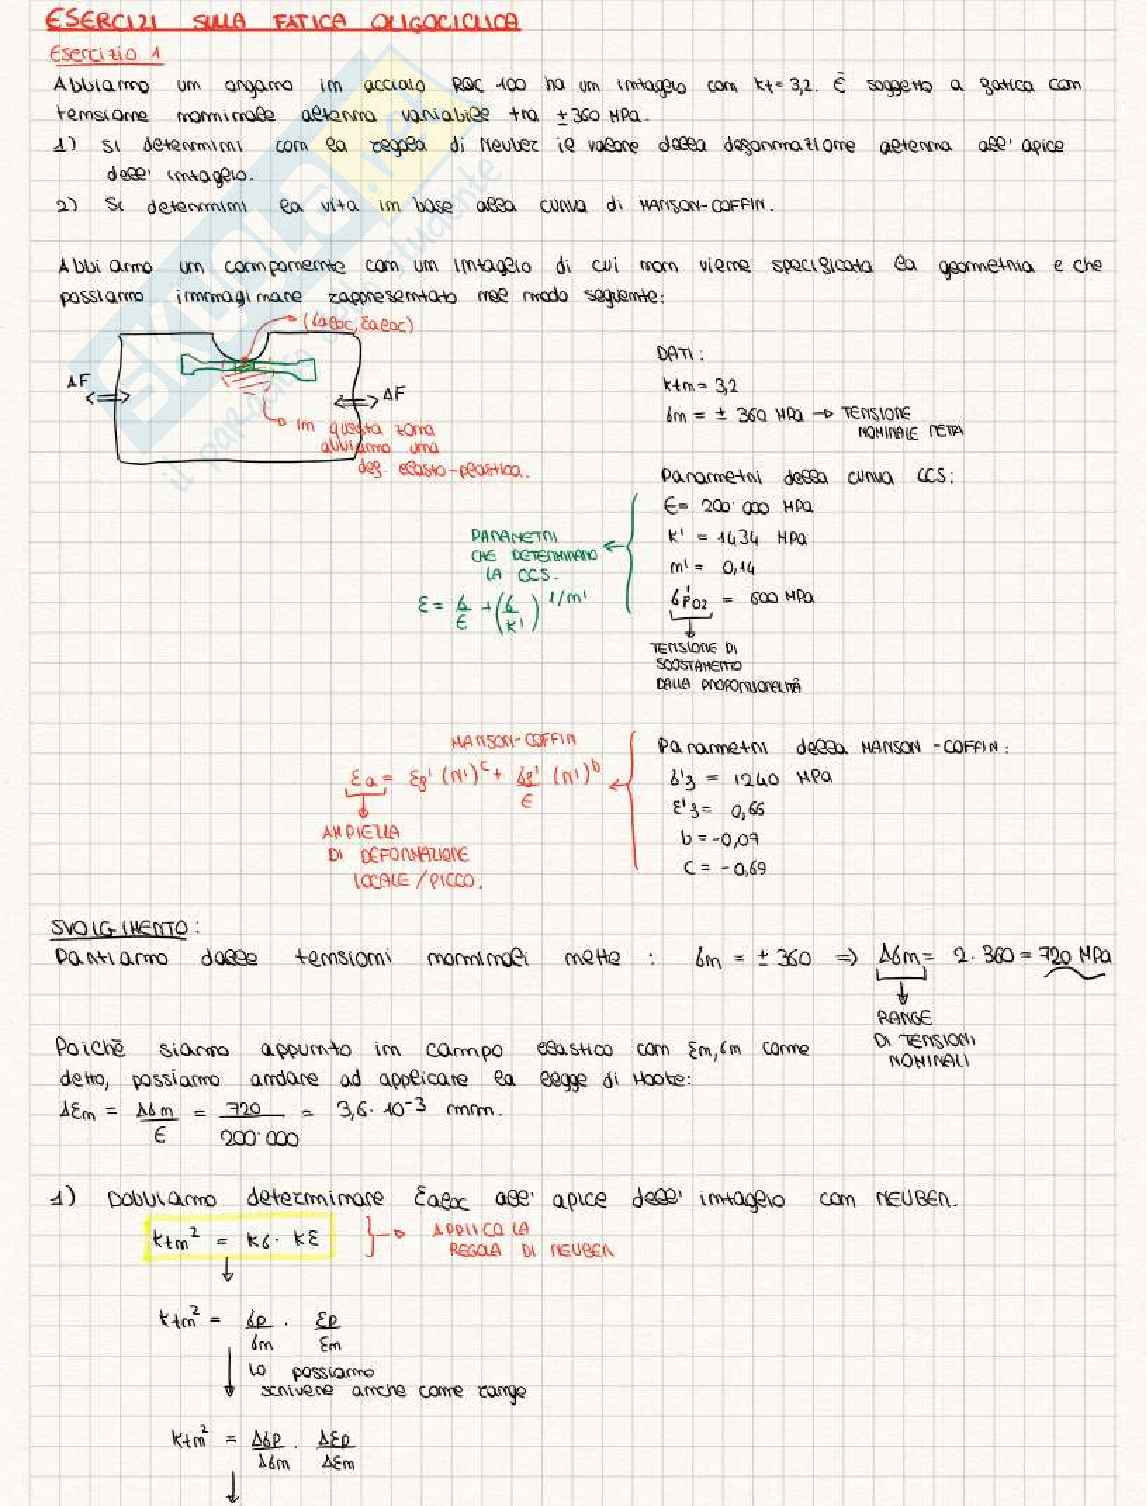 ESERCIZI SULLA FATICA OLIGOCICLICA
Esercizio 1
Abbiamo un organo in acciaio RQC-100 ha un intaglio con kt = 3,2. È soggetto a fatica con
tensione nominale alterna variabile tra ±360 MPa.
1) Si determini con la regola di Neuber il valore della deformazione alterna all'apice
dell'intaglio.
2) Si determini la vita in base alla curva di MANSON-COFFIN.
Abbiamo un componente con un intaglio di cui non viene specificata la geometria e che
possiamo immaginare rappresentato nel modo seguente:
(σaloc, εaloc)
ΔF
ΔF
In questa zona
abbiamo una
def. elasto-plastica.
DATI:
ktn = 3,2
σn = ± 360 MPa → TENSIONE
NOMINALE NETTA
Parametri della curva CCS:
E = 200'000 MPa
k' = 1434 MPa
n' = 0,14
σ'p02 = 600 MPa
TENSIONE DI
SCOSTAMENTO
DALLA PROPORZIONALITÀ
PARAMETRI
CHE DETERMINANO
LA CCS.
ε = σ/E + (σ/k')^1/n'
MANSON-COFFIN
εa = εf' (N')^c + σf'/E (N')^b
AMPIEZZA
DI DEFORMAZIONE
LOCALE/PICCO.
Parametri della MANSON-COFFIN:
σ'f = 1240 MPa
ε'f = 0,66
b = -0,07
c = -0,69
SVOLGIMENTO:
Partiamo dalle tensioni nominali nette: σn = ± 360 ⇒ Δσn = 2·360 = 720 MPa
RANGE
DI TENSIONI
NOMINALI
Poichè siamo appunto in campo elastico con εn, σn come
detto, possiamo andare ad applicare la legge di Hooke:
Δεn = Δσn/E = 720/200'000 = 3,6·10^-3 mm.
1) Dobbiamo determinare εaloc all'apice dell'intaglio con NEUBER.
ktn² = kσ · kε → APPLICO LA
REGOLA DI NEUBER
ktn² = σp/σn · εp/εn
Lo possiamo
scrivere anche come range
ktn² = Δσp/Δσn · Δεp/Δεn